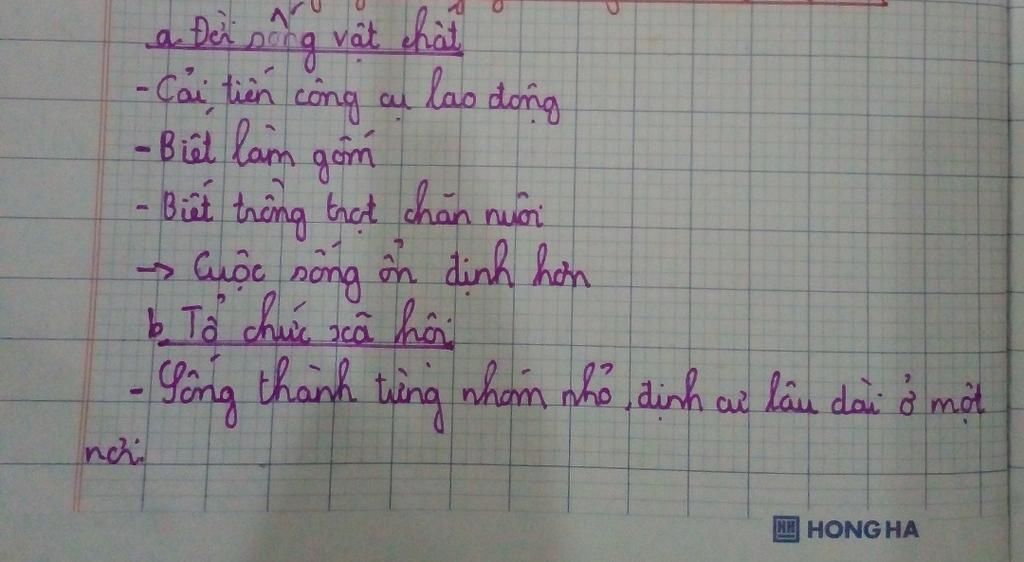 a. Đời sống vật chất
- Cải tiến công cụ lao động
- Biết làm gốm
- Biết trồng trọt chăn nuôi
→ Cuộc sống ổn định hơn
b. Tổ chức xã hội
- Sống thành từng nhóm nhỏ, định cư lâu dài ở một
nơi.
HH HONG HA